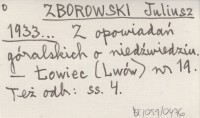 ZBOROWSKI Juliusz
1933... Z opowiadań
góralskich o niedźwiedziu.
— Łowiec (Lwów) nr 19.
Też odb: ss. 4.